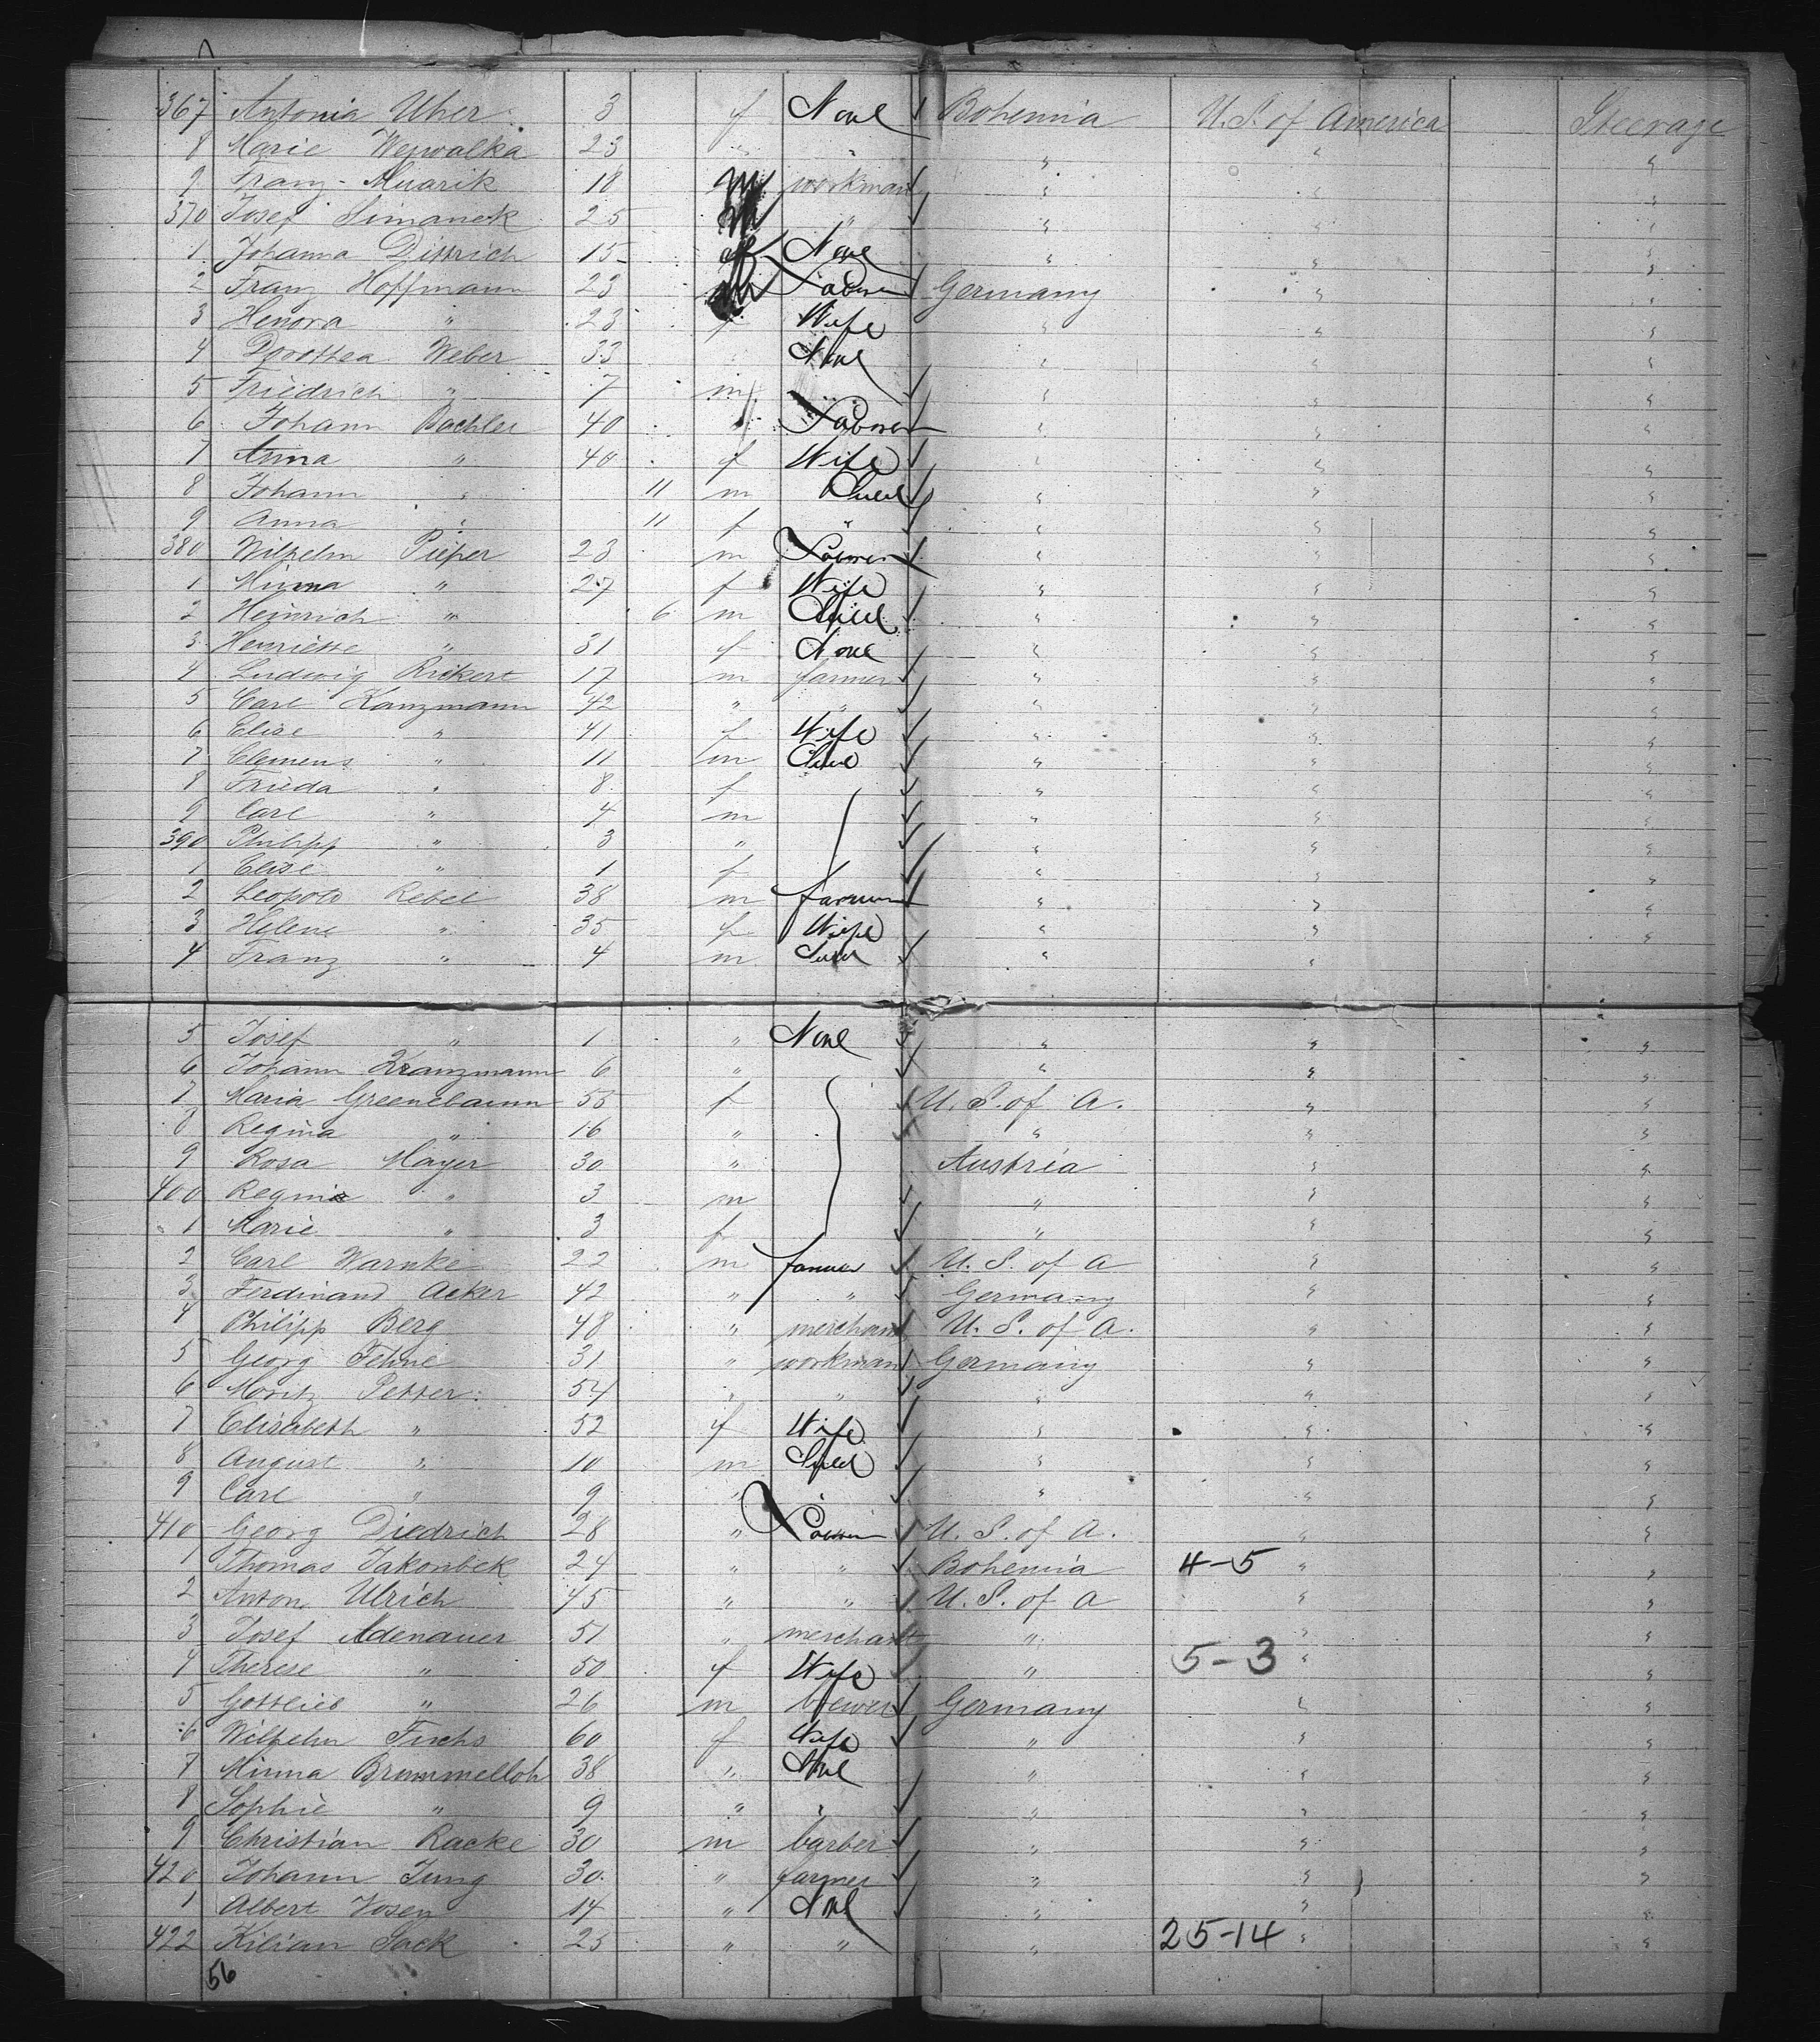 367 Antonia Uher 3 f None Bohemia U.S. of America Steerage
8 Marie Wewwalka 23 " " " "
9 Franz Muarik 18 m workman " " "
370 Josef Simanek 25 m " " " "
1 Johanna Dittrich 15 f None " " "
2 Franz Hoffmann 23 m Laborer Germany " "
3 Henora " 23 f Wife " " "
4 Dorothea Weber 33 " None " " "
5 Friedrich " 7 m " " "
6 Johann Bachler 40 " Laborer " " "
7 Anna " 40 f Wife " " "
8 Johann " 11 m Child " " "
9 Anna " 11 f " " " "
380 Wilhelm Pieper 23 m Laborer " " "
1 Minna " 27 f Wife " " "
2 Heinrich " 6 m Child " " "
3 Henriette " 31 f None " " "
4 Ludwig Rickert 17 m farmer " " "
5 Carl Kanzmann 42 " " " " "
6 Elise " 41 f Wife " " "
7 Clemens " 11 m Child " " "
8 Frieda " 8 f " " "
9 Carl " 4 m " " "
390 Philipp " 3 " " " "
1 Elise " 1 f " " "
2 Leopold Rebel 38 m farmer " " "
3 Helene " 35 f Wife " " "
4 Franz " 4 m Child " " "
5 Josef " 1 " None " " "
6 Johann Kranzmann 6 " " " "
7 Maria Greenebaum 55 f U. S. of A. " "
8 Regina " 16 " " " "
9 Rosa Mayer 30 " Austria " "
400 Regina " 3 m " " "
1 Marie " 3 f " " "
2 Carl Warnke 22 m farmer U. S. of A " "
3 Ferdinand Acker 42 " " Germany " "
4 Philipp Berg 48 " merchant U. S. of A. " "
5 Georg Fehne 31 " workman Germany " "
6 Moritz Petter 54 " " " " "
7 Elisabeth " 52 f Wife " " "
8 August " 10 m Child " " "
9 Carl " 9 " " " " "
410 Georg Diedrich 28 " Laborer U. S. of A. " "
1 Thomas Jakonbek 24 " " Bohemia 4-5 " "
2 Anton Ulrich 45 " " U. S. of A " "
3 Josef Adenauer 51 " merchant " " "
4 Therese " 50 f Wife " 5-3 " "
5 Gottlieb " 26 m brewer Germany " "
6 Wilhelm Fuchs 60 f Wife " " "
7 Minna Brummelloh 38 " None " " "
8 Sophie " 9 " " " " "
9 Christian Racke 30 m barber " " "
420 Johann Jung 30 " farmer " " "
1 Albert Vosen 14 " None " " "
422 Kilian Sack 25 " " " 25-14 " "
56